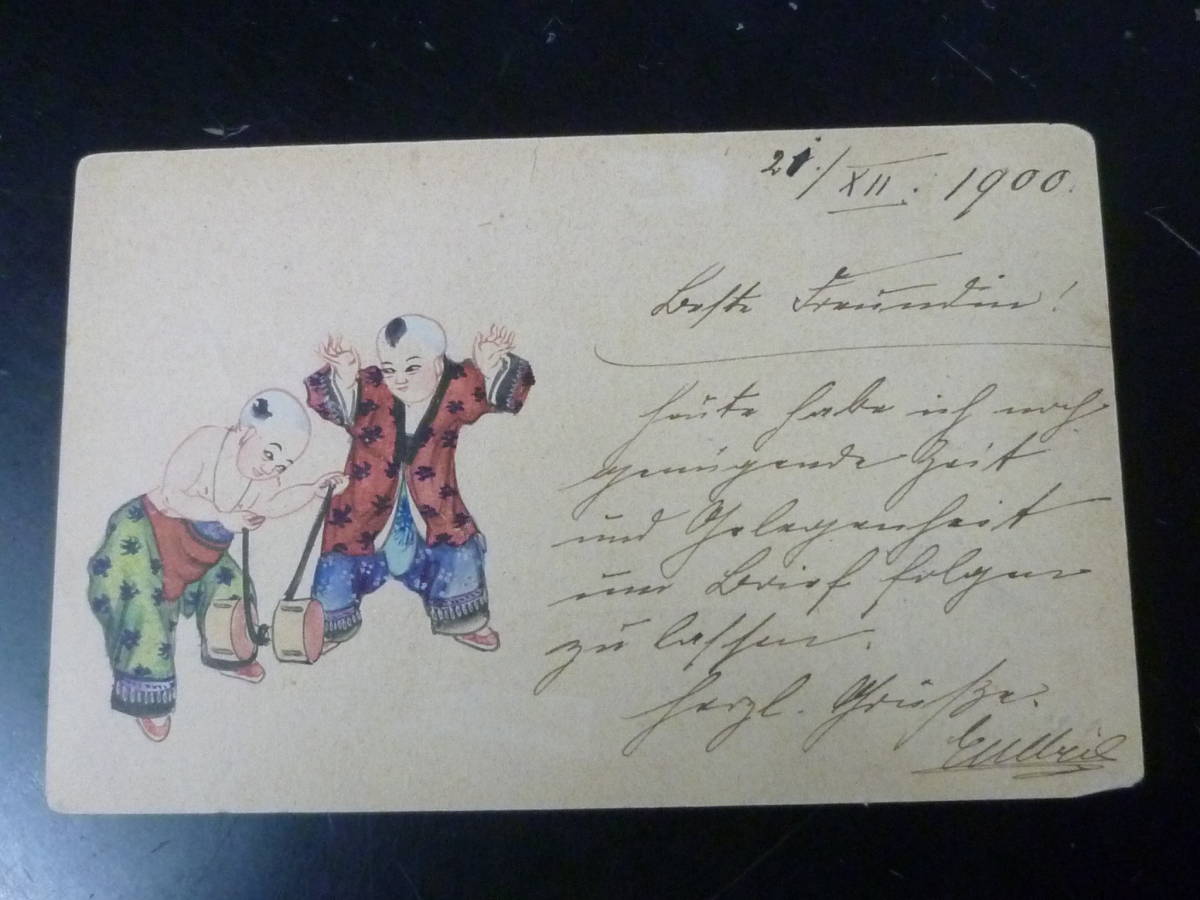 21./XII. 1900.
Beste Freundin!
Heute habe ich noch
genügende Zeit
und Gelegenheit
um Brief folgen
zu lassen.
Herzl. Grüße.